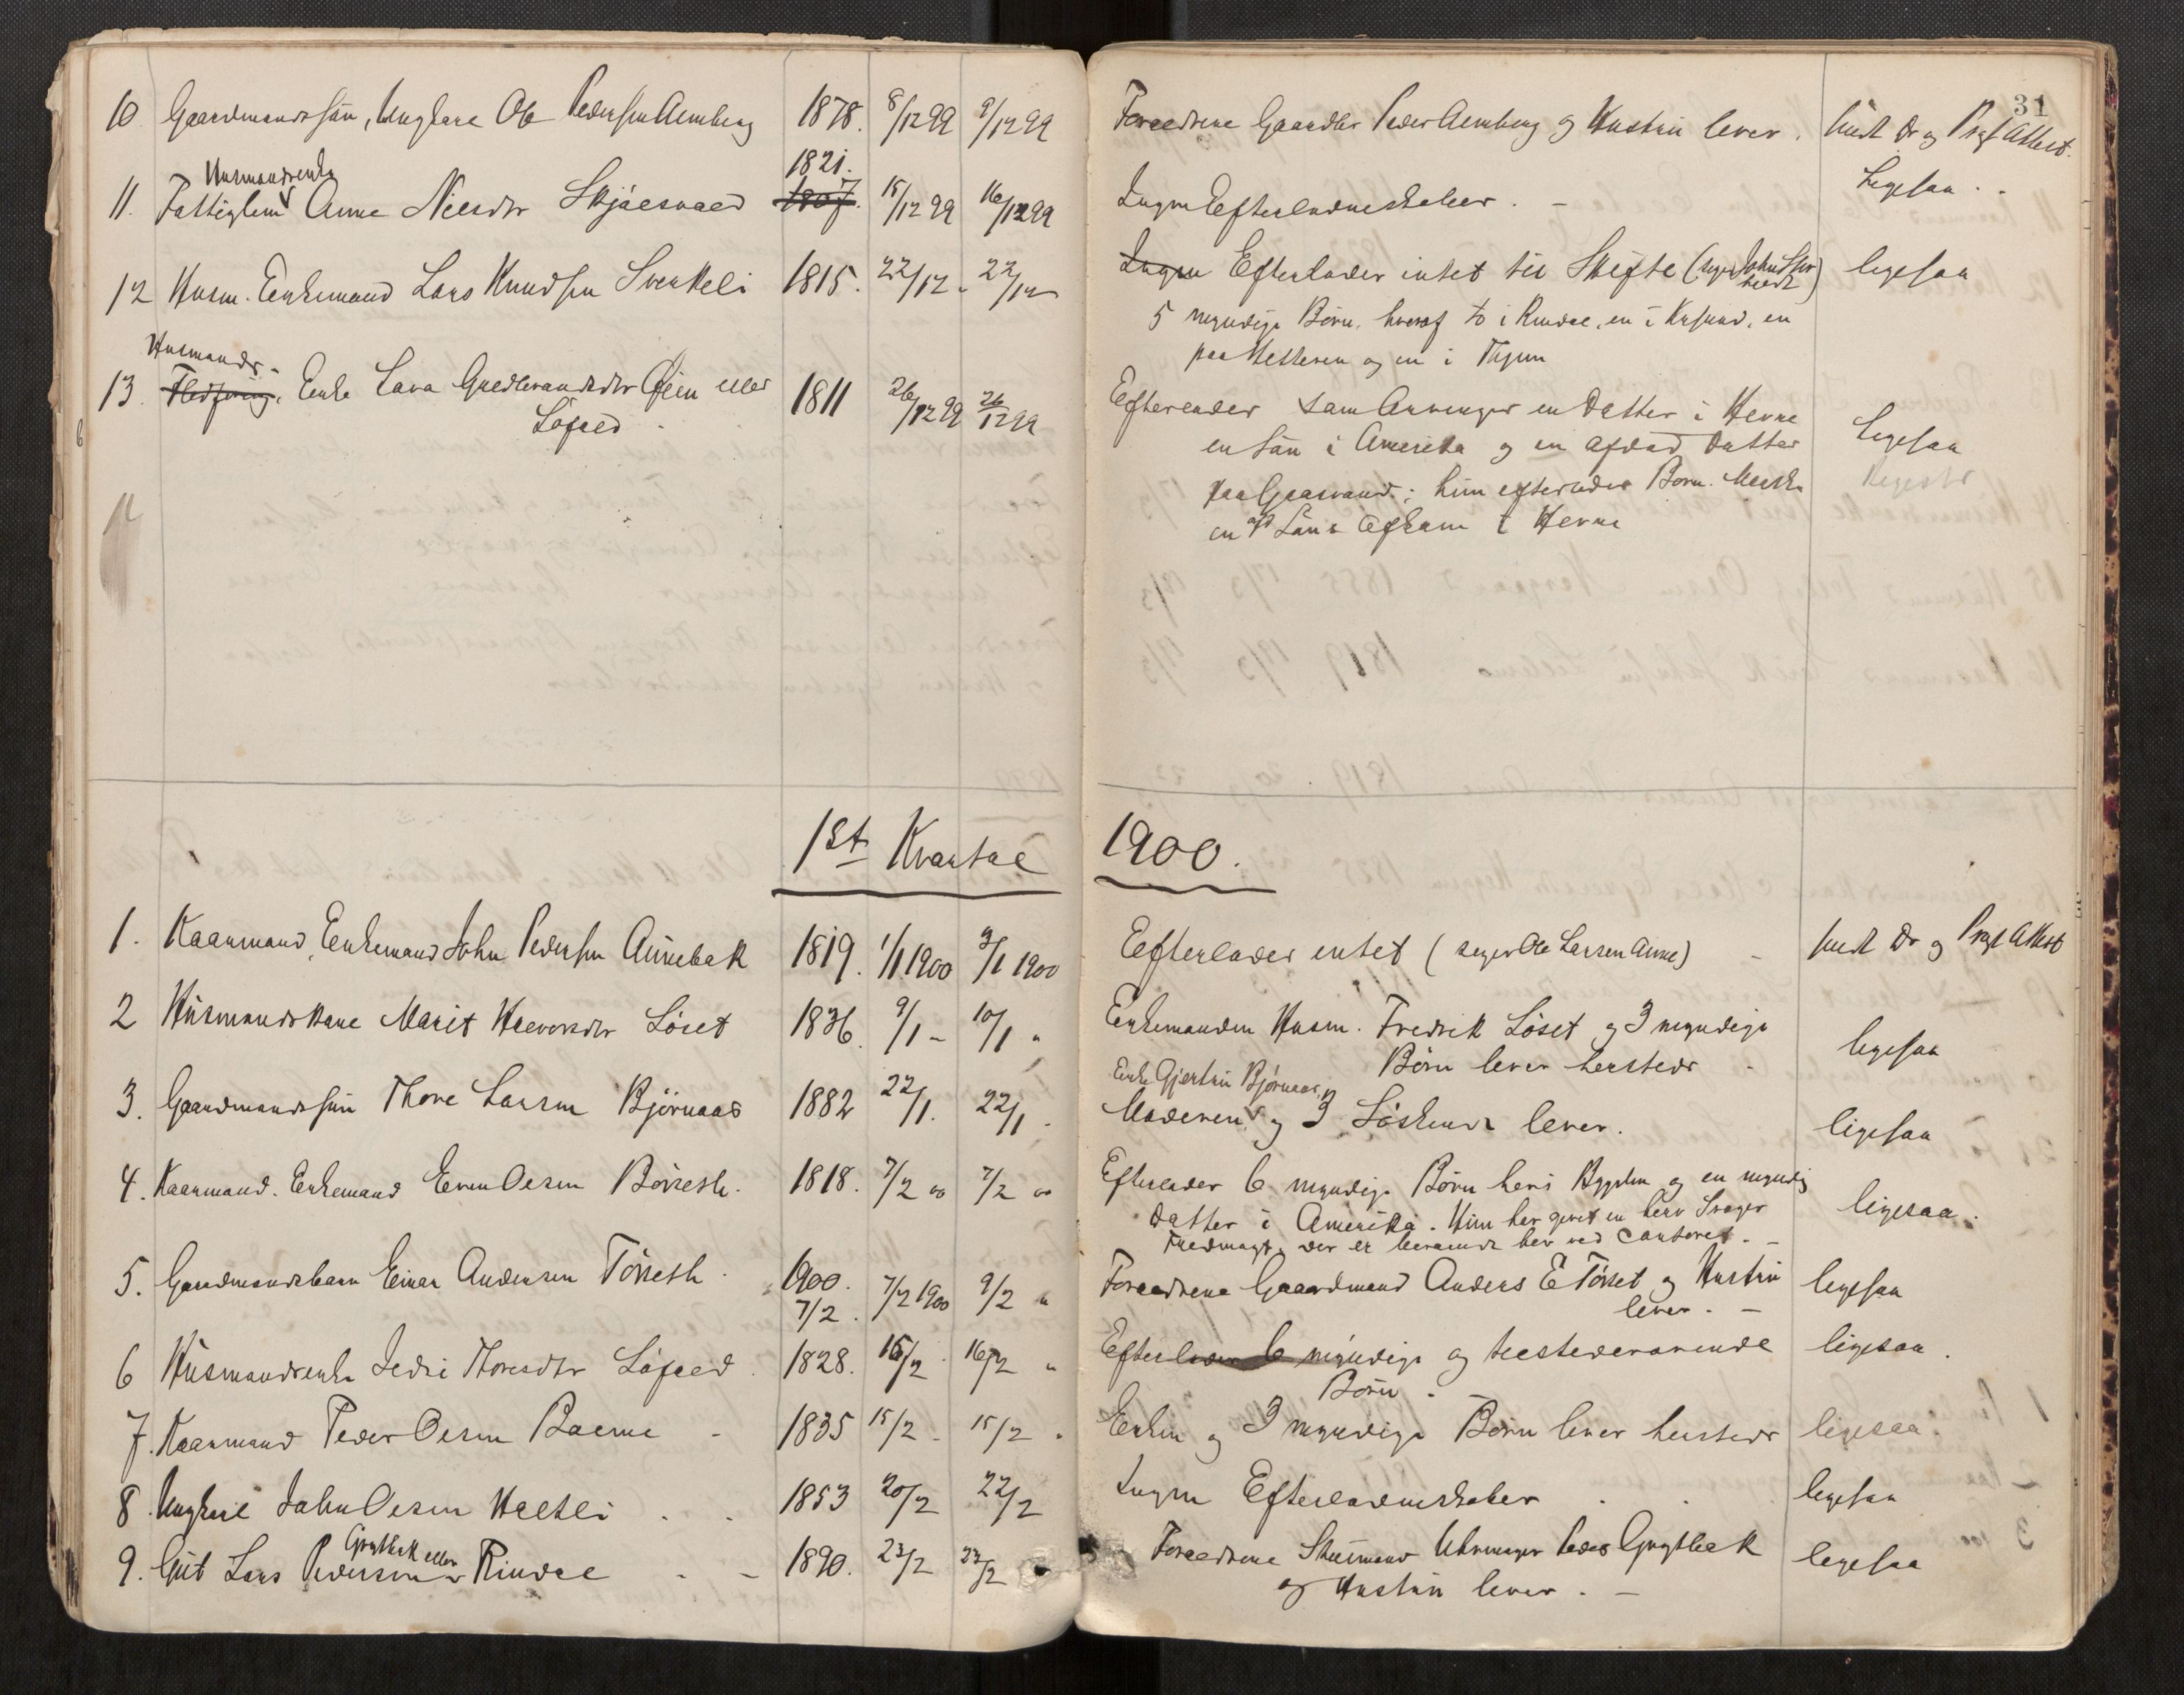 31
10. Gaardmandssøn, Ungkare Ole Pedersen Aemberg 1878. 8/12 99 9/12 99 Foraedrene Gaardbr Peder Aemberg og Hustru lever. sendt Dr og Prest Attest.
Husmandsenke 1821.
11. Fattiglem Anne Nielsdtr Skjølsvold 1807. 15/12 99 16/12 99 Ingen Efterladenskaber. - Ligesaa. .
12 Husm. Enkemand Lars Knudsen Svenkeli 1815. 22/12 - 22/12 Ingen Efterlader intet til Skifte (siger John) ligesaa
5 myndige Børn, hvoraf to i Rindal, en i Krsund, en
paa og en i
Husmands-
13. Enke Lava Øien eller 1811 26/12 99 26/12 99 Efterlader som Arvinger en Datter i Hevne
Løfald. en Søn i Amerika og en afdød Datter Ligesaa
paa Gaasvand; hun efterlader Børn.
en Søns Afkom i Hevne
1st Kvartal 1900.
1. Kaarmand, Enkemand John Pedersen Aunebak 1819. 1/1 1900 3/1 1900 Efterlader intet (siger Ole Larsen Aune) - sendt Dr og Prest Attest
2 Husmandskone Marit Halvorsdtr Løset 1836. 9/1 - 10/1 " Enkemanden Husm. Fredrik Løset og 3 myndige
Børn lever hersteds - ligesaa
Enke Gjertru Bjørnaas,
3. Gaardmandssøn Thore Larsen Bjørnaas 1882 22/1. 22/1. Moderen og 3 Søskende lever. ligesaa
4. Kaarmand. Enkemand Even Olsen Børseth. 1818. 7/2 00 7/2 00 Efterlader 6 myndige Børn her i Bygden og en myndig
Datter i Amerika. Hun har givet en herv. Svoger ligesaa.
Fuldmagt, der er beroende her ved Contoret. -
5. Gaardmandsbarn Einar Andersen Tørseth. 1900. 7/2. 7/2 1900 9/2 " Foraeldrene Gaardmand Anders E Tørset og Hustru ligesaa
lever. -
6 Husmandsenke Sedri Thoresdtr Løfald. 1828. 15/2. 16/2 " Efterlader 6 myndige og tilstedeværende ligesaa.
Børn.
7. Kaarmand Peder Olsen Bolme - 1835 15/2 - 15/2 " Enken og 3 myndige Børn lever hersteds ligesaa.
8. Ungkarl John Olsen Haltli . . 1853 20/2 22/2 Ingen Efterladenskaber . . ligesaa
Grytbak eller
9. Gut Lars Pedersen Rindal - - 1890. 23/2 23/2 Foraeldrene Uhrmager Peder Grytbak
og Hustru lever. - ligesaa